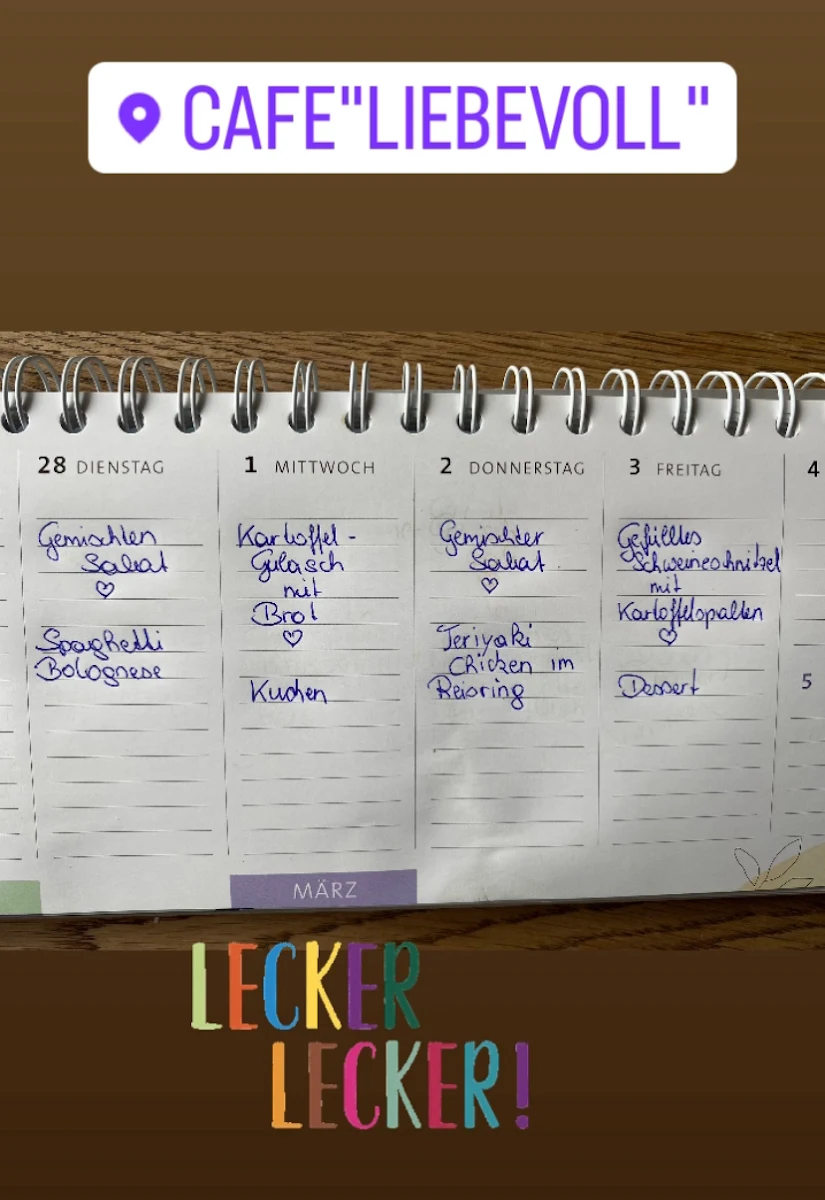 CAFE"LIEBEVOLL"
28 DIENSTAG
Gemischten
Salat
♡
Spaghetti
Bolognese
1 MITTWOCH
Kartoffel-
Gulasch
mit
Brot
♡
Kuchen
2 DONNERSTAG
Gemischter
Salat
♡
Teriyaki
Chicken im
Reisring
3 FREITAG
Gefülltes
Schweineschnitzel
mit
Kartoffelspalten
♡
Dessert
4
5
MÄRZ
LECKER
LECKER!